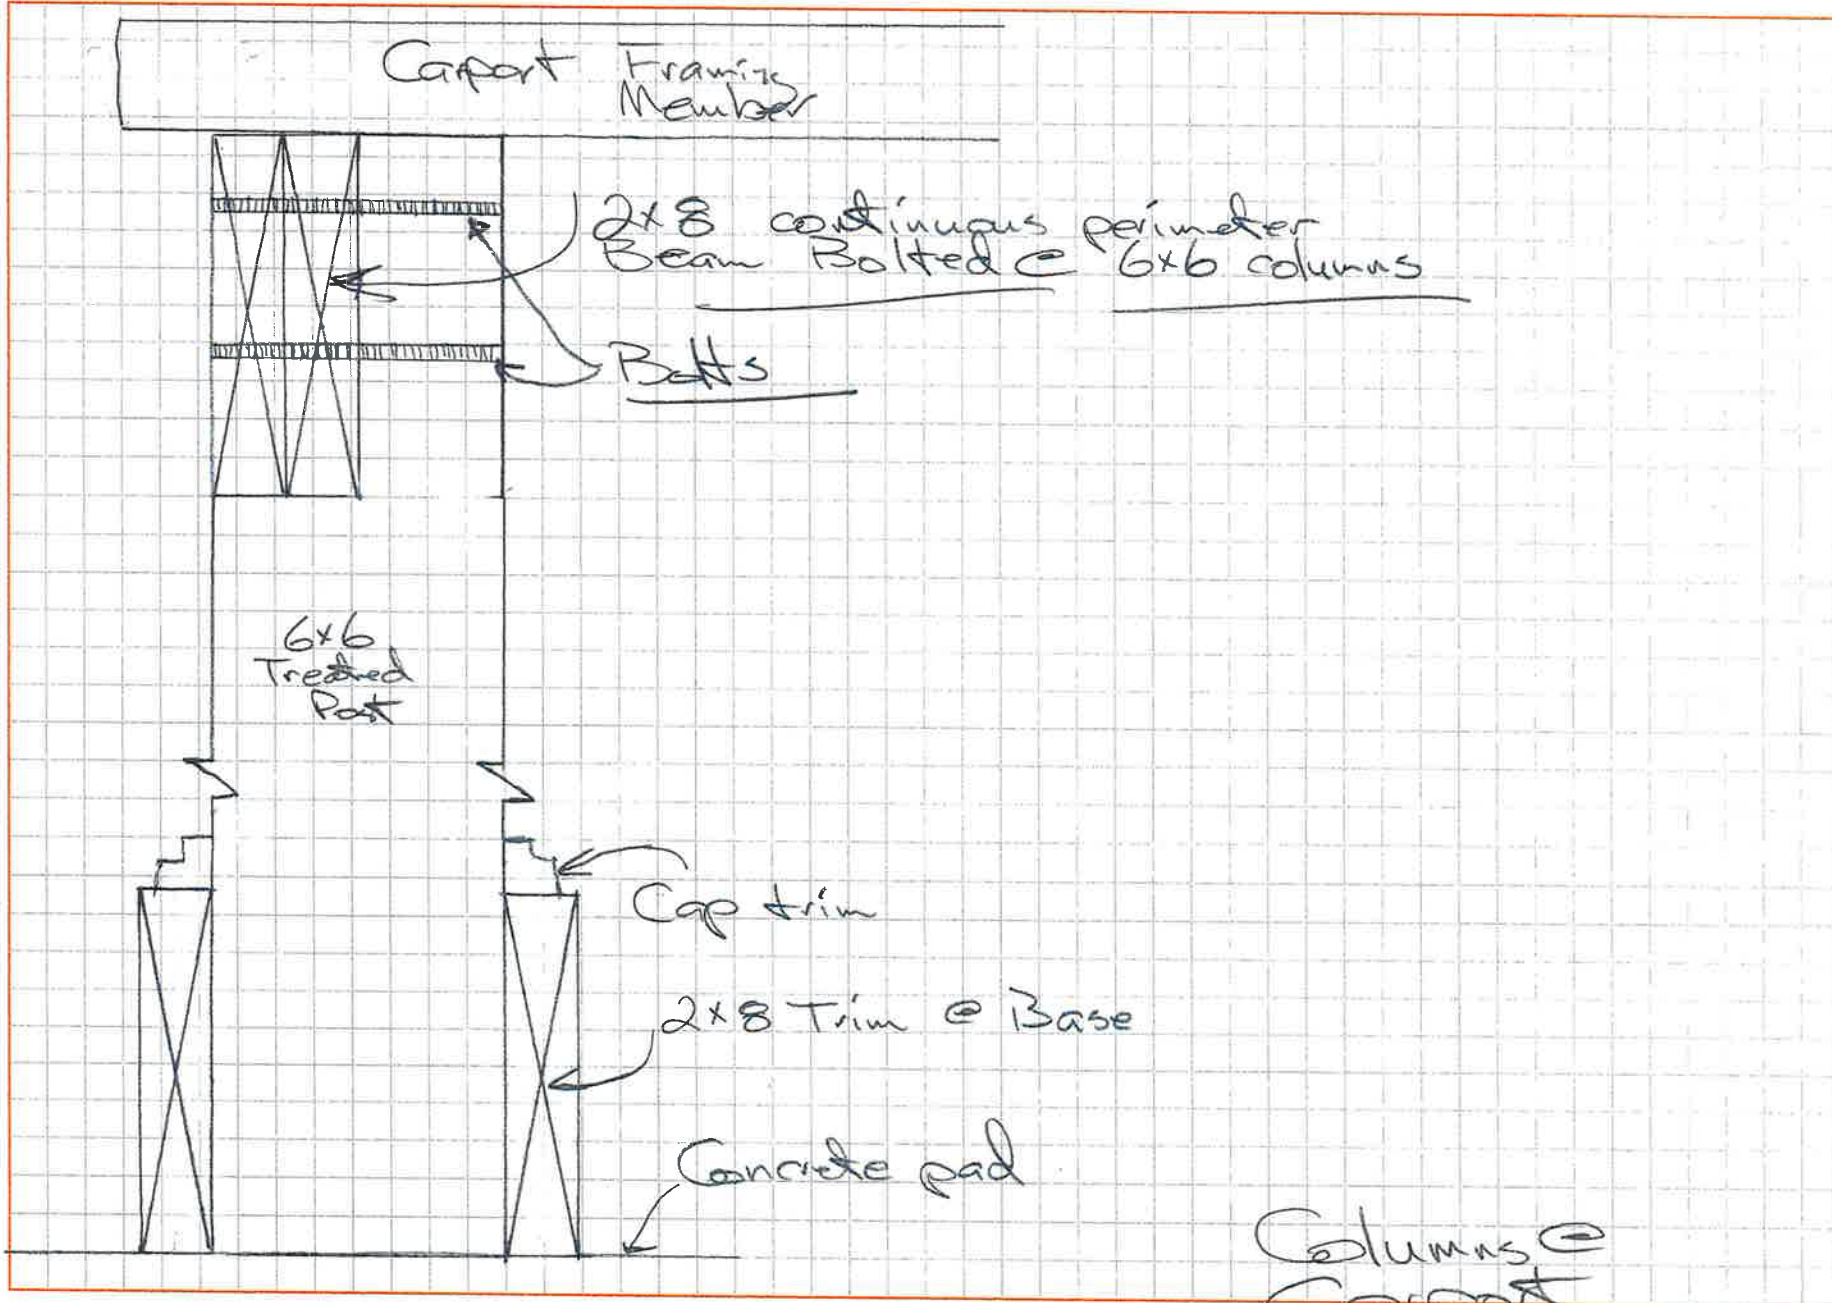 Carport Framing
Member
2x8 continuous perimeter
Beam Bolted @ 6x6 columns
Bolts
6x6
Treated
Post
Cap trim
2x8 Trim @ Base
Concrete pad
Columns @
Carport